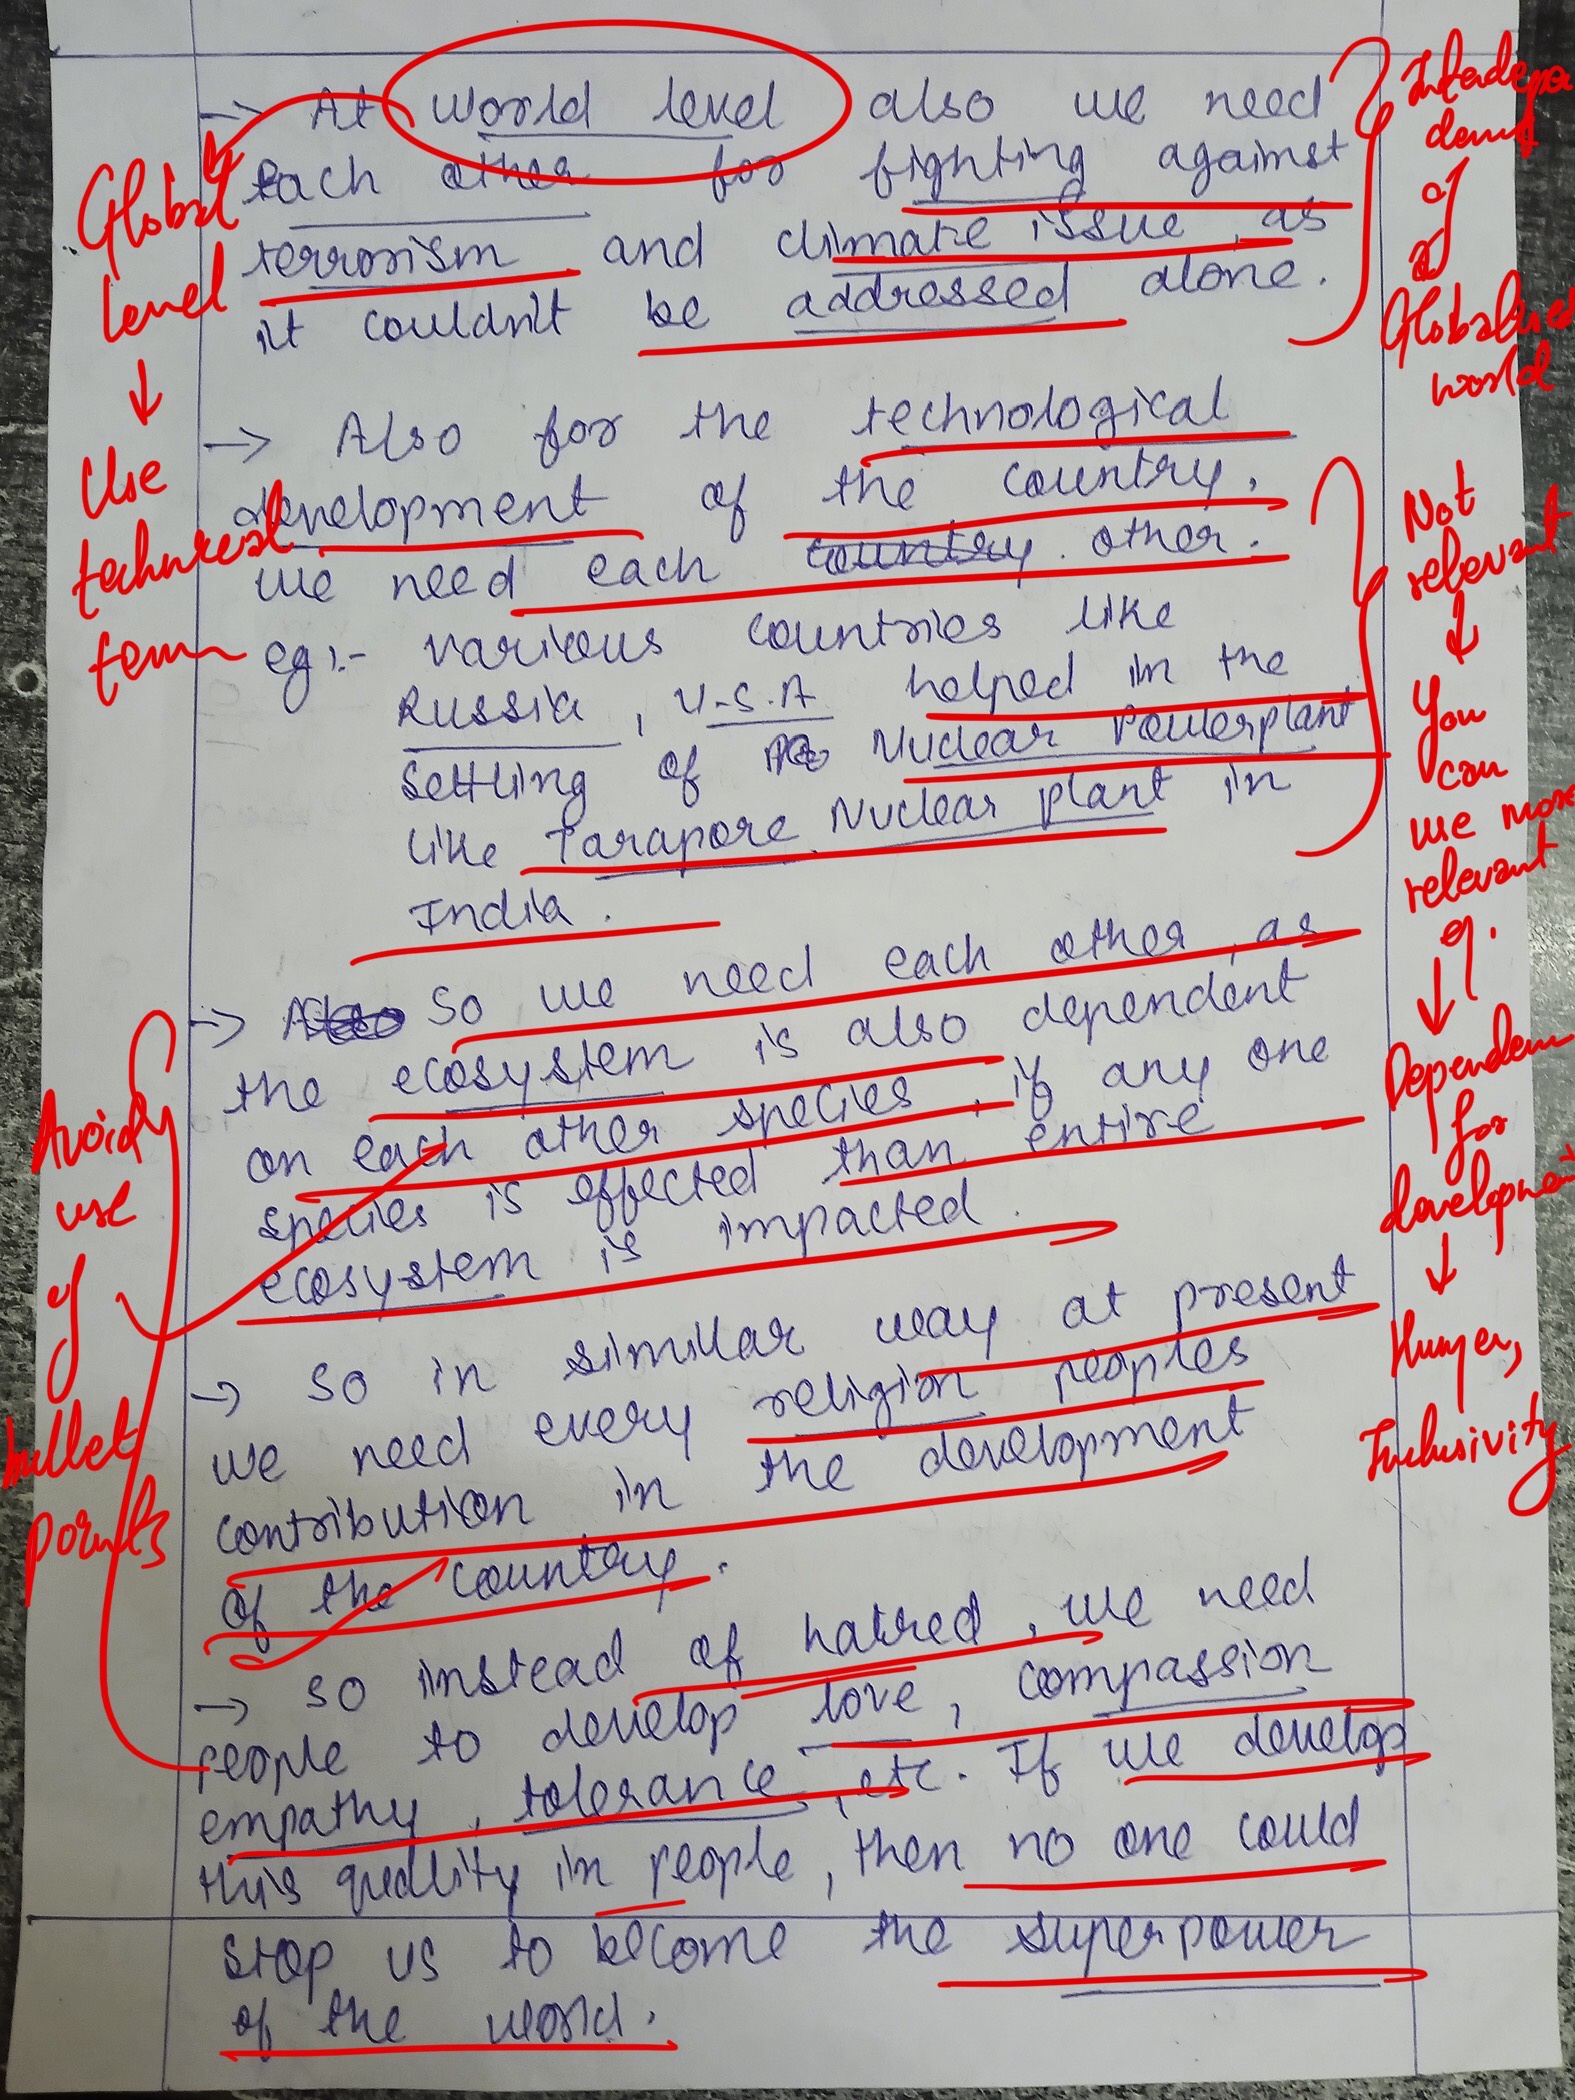 → At world level also we need
each other for fighting against
terrorism and climate issue, as
it couldn't be addressed alone.
→ Also for the technological
development of the country,
we need each country. other.
eg:- various countries like
Russia, U.S.A helped in the
settling of Nuclear Powerplant
like Tarapore Nuclear plant in
India.
→ Also So we need each other, as
the ecosystem is also dependent
on each other species, if any one
species is effected than entire
ecosystem is impacted.
→ so in similar way at present
we need every religion peoples
contribution in the development
of the country.
→ so instead of hatred, we need
people to develop love, compassion
empathy, tolerance, etc. If we develop
this quality in people, then no one could
stop us to become the superpower
of the world.
Global
level
↓
Use
technical
term
Avoid
use
of
bullet
points
Interdepen
dency
of
Globalised
world
Not
relevant
↓
You
can
use more
relevant
eg.
↓
Dependen
for
development
↓
Hunger,
Inclusivity